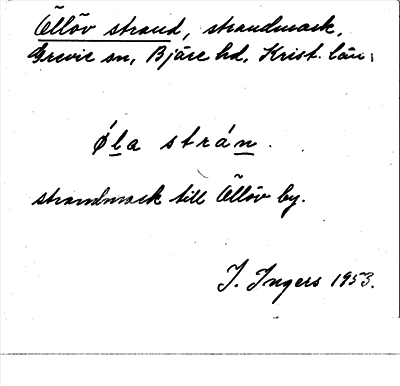 Ölöv strand, strandmark,
Grevie sn, Bjäre hd, Krist. län.
ǿla strán.
strandmark till Ölöv by.
I. Ingers 1953.